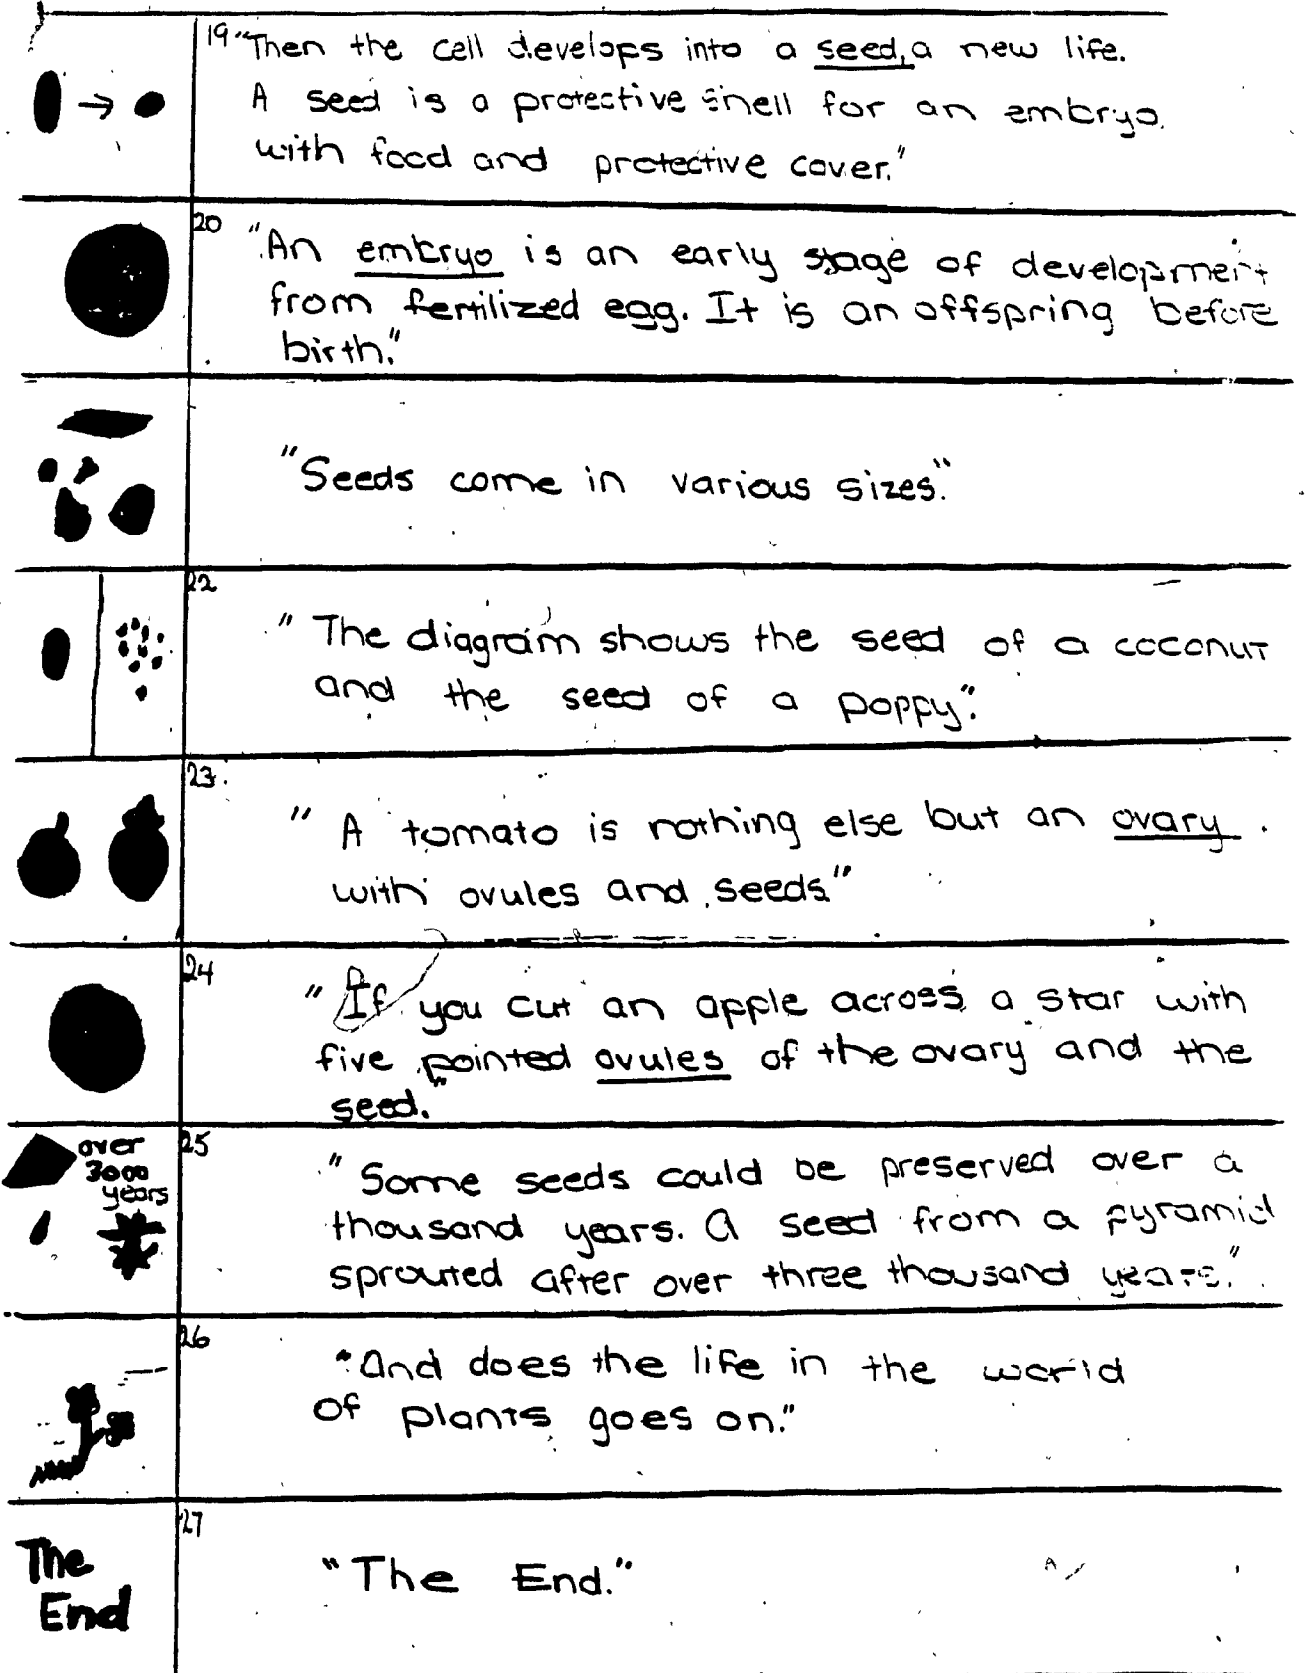 19 "Then the cell develops into a seed, a new life.
A seed is a protective shell for an embryo
with food and protective cover."
20 "An embryo is an early stage of development
from fertilized egg. It is an offspring before
birth."
"Seeds come in various sizes."
22
"The diagram shows the seed of a coconut
and the seed of a poppy".
23.
"A tomato is nothing else but an ovary
with ovules and seeds"
24
"If you cut an apple across a star with
five pointed ovules of the ovary and the
seed."
over
3000
years
25
"Some seeds could be preserved over a
thousand years. A seed from a pyramid
sprouted after over three thousand years."
26
"And does the life in the world
of plants goes on."
27
The
End
"The End."